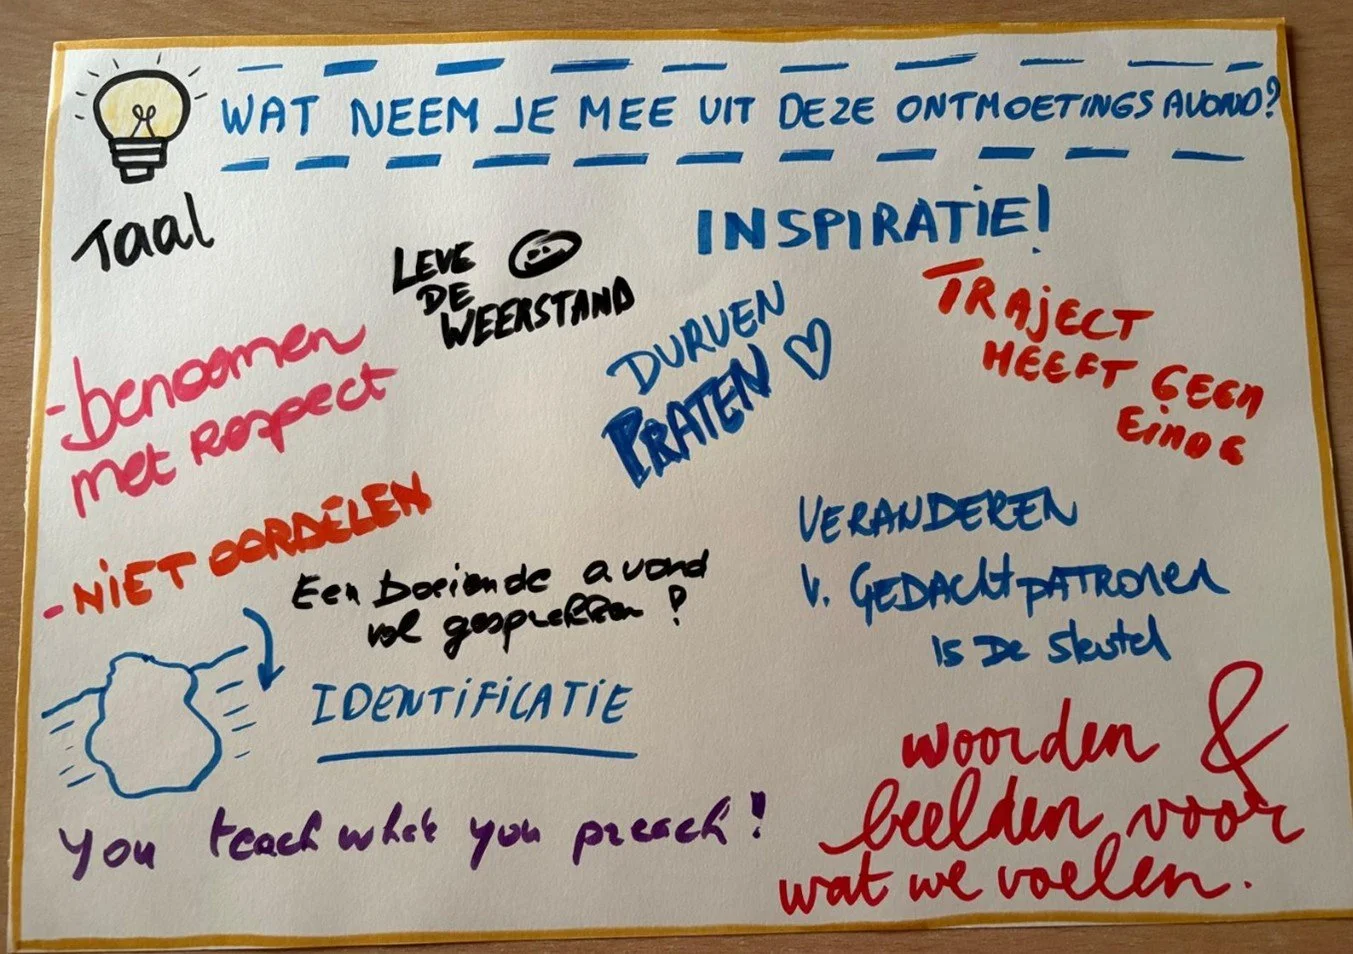 WAT NEEM JE MEE UIT DEZE ONTMOETINGSAVOND?
Taal
LEVE
DE
WEERSTAND
INSPIRATIE!
DURVEN
PRATEN
TRAJECT
HEEFT GEEN
EINDE
- benoemen
met respect
- NIET OORDELEN
Een boeiende avond
vol gesprekken!
VERANDEREN
V. GEDACHTPATRONEN
IS DE SLEUTEL
IDENTIFICATIE
woorden &
beelden voor
wat we voelen.
You teach what you preach!